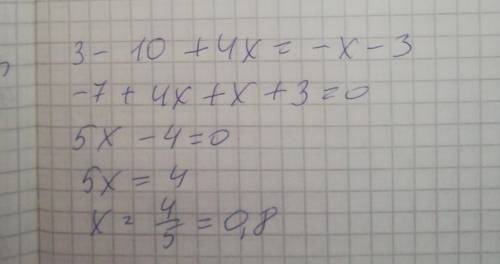 3 - 10 + 4x = -x - 3
-7 + 4x + x + 3 = 0
5x - 4 = 0
5x = 4
x = 4/5 = 0,8